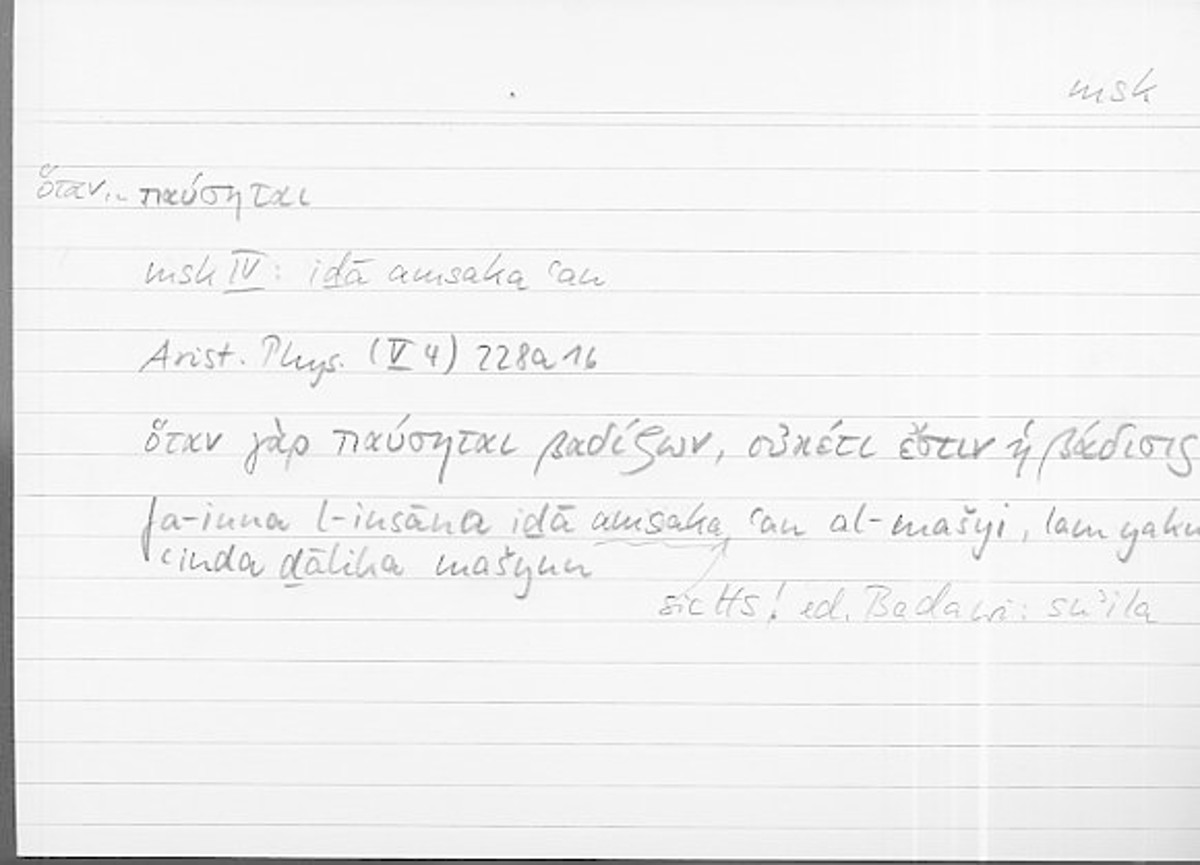 msk
ὅταν... παύσηται
msk IV: iḏā amsaka ʿan
Arist. Phys. (V 4) 228a16
ὅταν γὰρ παύσηται βαδίζων, οὐκέτι ἔστιν ἡ βάδισις
fa-inna l-insāna iḏā amsaka ʿan al-mašyi, lam yaku
ʿinda ḏālika mašyun
sic Hs! ed. Badawi: suʾila